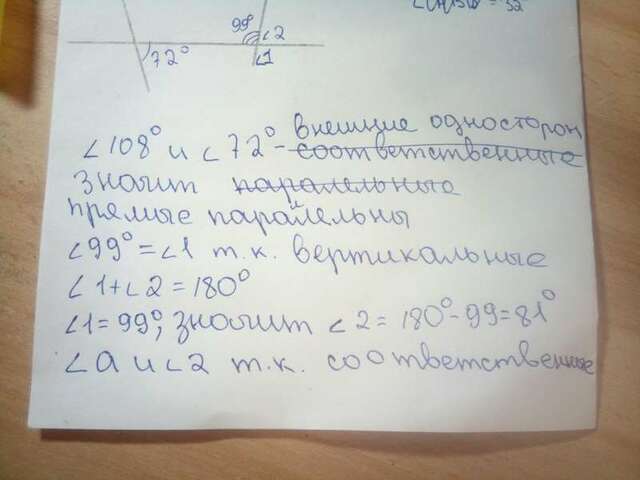 99° ∠2
72° ∠1
∠108° и ∠72° - внешние односторон
соответственные
значит паралельные
прямые паралельны
∠99° = ∠1 т.к. вертикальные
∠1+∠2 = 180°
∠1 = 99°, значит ∠2 = 180° - 99 = 81°
∠a и ∠2 т.к. соответственные